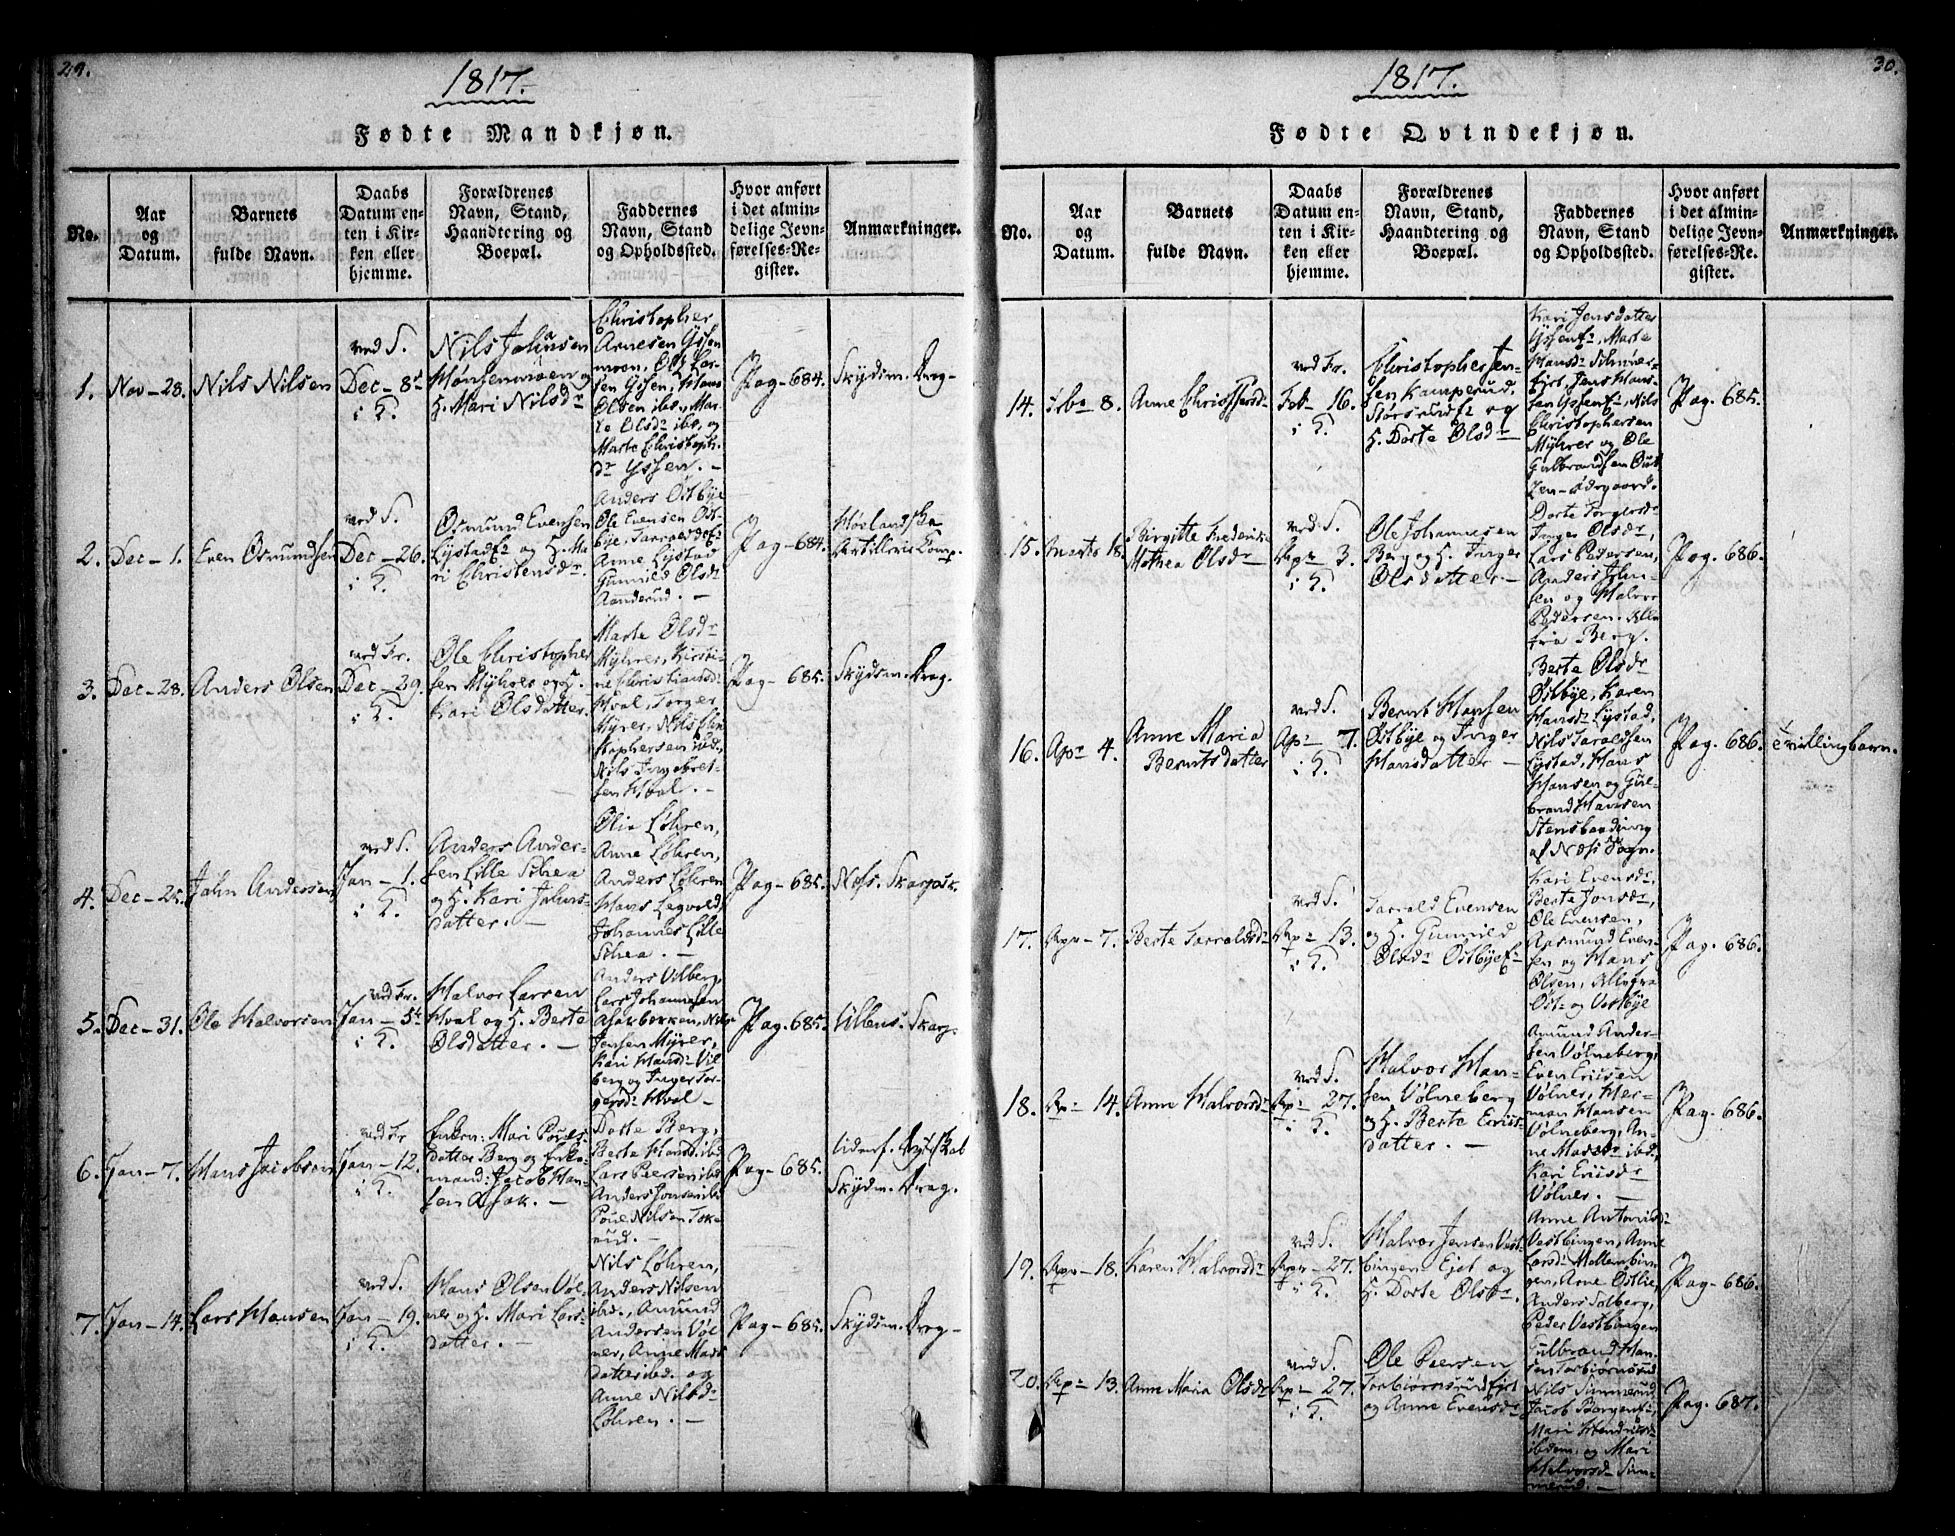 29.
1817.
Fødte Mandkjøn.
No.
Aar
og
Datum.
Barnets
fulde Navn.
Daabs
Datum en-
ten i Kir-
ken eller
hjemme.
Forældrenes
Navn, Stand,
Haandtering og
Boepæl.
Faddernes
Navn, Stand
og Opholdssted.
Hvor anført
i det almin-
delige Jevn-
førelses-Re-
gister.
Anmærkninger.
1.
Nov - 28.
Nils Nilsen
vod S.
Dec - 8de
i K.
Nils Johnsen
Hønsenmoen og
H. Mari Nilsdr
Christopher
Arnesen Yssen
moen, Ole Lar-
sen Yssen, Hans
Olsen ibd, Mar-
te Olsdr ibd, og
Marte Christoph.
dr Yssen. -
Pag - 684.
Skydsm. Drag -
2.
Dec - 1.
Even Osmundsen
vod S.
Dec - 26.
i K.
Osmund Evensen
Lystadf. og H. Ma-
ri Christensdr.
Anders Østbye
Ole Evensen Øst-
bye, Tarraldsef.
Anne Lystad
Gunnild Olsdr
Aanderud. -
Pag - 684.
Høelandska
Artillerie Comp.
3.
Dec - 28.
Anders Olsen
vod Fr.
Dec - 29.
i K.
Ole Christopher
sen Myhrer og H.
Kari Olsdatter.
Marte Olsdr
Myhrer, Kirsti-
ne Christiansd.
Hval, Torger
Myrer, Nils Chri
stophersen ibd.,
Nils Ingebret-
sen Hval. -
Pag - 685.
Skydsm. Drag.
4.
Dec - 25.
John Andersen
vod S.
Jan - 1.
i K.
Anders Ander-
sen Lille Schea
og H. Kari Johns-
datter. -
Olia Løhren,
Anne Løhren,
Anders Løhren
Hans Legvold,
Johannes Lille
Schea. -
Pag - 685.
Nefs. Skarpsk.
5.
Dec - 31.
Ole Halvorsen
vod Fr.
Jan - 5te
i K.
Halvor Larsen
Hval og H. Berte
Olsdatter. -
Anders Vilberg,
Lars Johannesen
Asakbekken, Nils
Jensen Myrer,
Kari Hansdr Vil
berg og Inger Tor-
gersdr Hval -
Pag - 685.
Ullens. Skarp.
6.
Jan - 7.
Hans Jacobsen
vod Fr
Jan - 12.
i K.
Enken: Mari Pouls-
datter Berg og Enke-
mand: Jacob Han-
sen Asak. -
Dotte Berg,
Berte Hansd ibd
Lars Peersen ibd
Anders Jonsen ibd
Poul Nilsen Tok-
rud. -
Pag - 685.
Skydm. Drag.
7.
Jan - 14.
Lars Hansen
vod S.
Jan - 19.
i K.
Hans Olsen Vøl-
ner og H. Mari Lars-
datter. -
Nils Løhren,
Anders Nilsen
ibd., Amund
Andersen Vøl-
ner, Anne Mads
datter ibd. og
Anne Nilsdr
Løhren. -
Pag - 685.
Skydsm. Drag -
30.
1817.
Fødte Qvindekjøn.
No.
Aar
og
Datum.
Barnets
fulde Navn.
Daabs
Datum en-
ten i Kir-
ken eller
hjemme.
Forældrenes
Navn, Stand,
Haandtering og
Boepæl.
Faddernes
Navn, Stand
og Opholdssted.
Hvor anført
i det almin-
delige Jevn-
førelses-Re-
gister.
Anmærkninger.
14.
8.
vod Fr.
Feb - 16.
i K.
Christopher Jen-
sen Kamperud,
Størsrudf. og
H. Dorte Olsdr -
Kari Jensdatter
Yssenf., Marte
Hansdr Solmoer-
fjel, Jens Han-
sen Yssenf., Nils
Christophersen
Myhrer og Ole
Gulbrandsen Øust
Zen-ødegaard.
Pag. 685.
15.
Marts 18.
Birgitte Frederik-
Mathea Olsdr
vod S.
Apr 3.
i K.
Ole Johannesen
Berg og H. Inger
Olsdatter -
Dorte Torgersdr
Inger Olsdr,
Lars Pedersen,
Anders John-
sen og Halvor
Pedersen. Alle
fra Berg.
Pag. 686.
16.
Apr 4.
Anne Maria
Berntsdatter
vod S.
Apr 7.
i K.
Bernt Hansen
Østbye og Inger
Hansdatter -
Berte Olsdr
Østbye, Karen
Hansdr Lystad,
Nils Taraldsen
Lystad, Hans
Hansen og Gul-
brand Hansen
af Næss Sogn.
Pag. 686.
Tvillingbarn.
17.
Apr - 7.
Berte Tarraldsdr
vod S.
Apr 13.
i K.
Tarrald Evensen
og H. Gunnild
Olsdr Østbyef.
Kari Evensdr,
Berte Jonsdr,
Ole Evensen,
Aasmund Even-
sen og Hans
Olsen, Alle fra
Øst- og Vestbye
Pag - 686.
18.
Apr 14.
Anne Halvorsdr
vod S.
Apr 27.
i K.
Halvor Han-
sen Vølneberg
og H. Berte Eriks-
datter. -
Amund Ander-
sen Vølneberg,
Even Eriksen
Vølner, Her-
man Hansen
Vølneberg, An-
ne Madsdr ibd,
Kari Eriksdr
Vølner. -
Pag - 686.
19.
Apr - 18.
Karen Halvorsdr
vod S.
Apr - 27.
i K.
Halvor Jensen Vest-
bingen Ejet og
H. Dorte Olsdr.
Anne Antonisdr
Vestbingen, Anne
Larsdr Mellembin
gen, Arne Østlie,
Anders Solberg,
Peder Vestbingen
Pag - 686.
20.
Apr 13.
Anne Maria Olsdr
vod S.
Apr 27.
i K.
Ole Peersen
Torbjørnsrud Ejet
og Anne Evensdr
Gulbrand Han-
sen Torbjørnsrud
Nils Simmerud
Jacob Borgenf.,
Mari Hendriksdr
ibdem. og Mari
Halvorsdr Sim-
merud. -
Pag. 687.